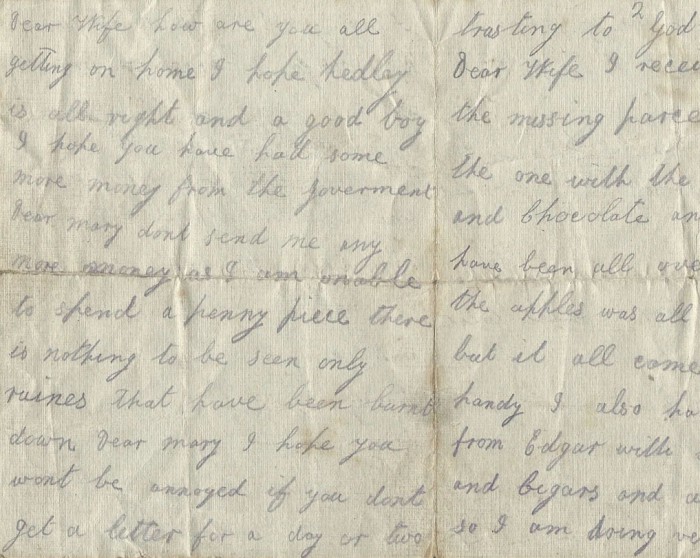 Dear Wife how are you all
getting on home I hope hedley
is all right and a good boy
I hope you have had some
more money from the goverment
Dear mary dont send me any
more money as I am unable
to spend a penny piece there
is nothing to be seen only
ruines that have been burnt
down Dear mary I hope you
wont be annoyed if you dont
get a letter for a day or two
2
trasting to God
Dear Wife I recei
the missing parce
the one with the
and Chocolate an
have been all ove
the apples was all
but it all come
handy I also ha
from Edgar with
and Cigars and a
so I am doing we